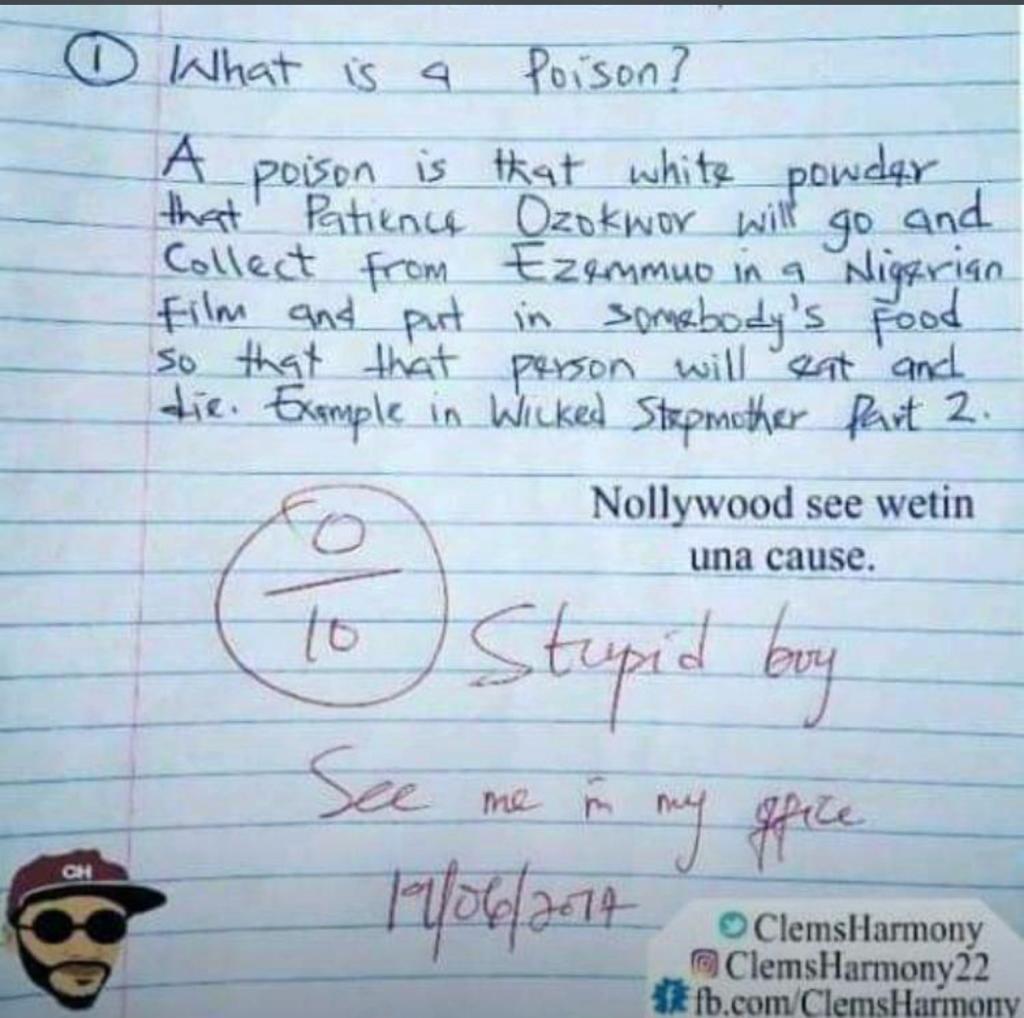 1 What is a Poison?
A poison is that white powder
that Patience Ozokwor will go and
Collect from Ezemmuo in a Nigerian
film and put in somebody's food
so that that person will eat and
die. Example in Wicked Stepmother Part 2.
Nollywood see wetin
una cause.
0
10
Stupid boy
See me in my office
19/06/2014
CH
ClemsHarmony
ClemsHarmony22
fb.com/ClemsHarmony